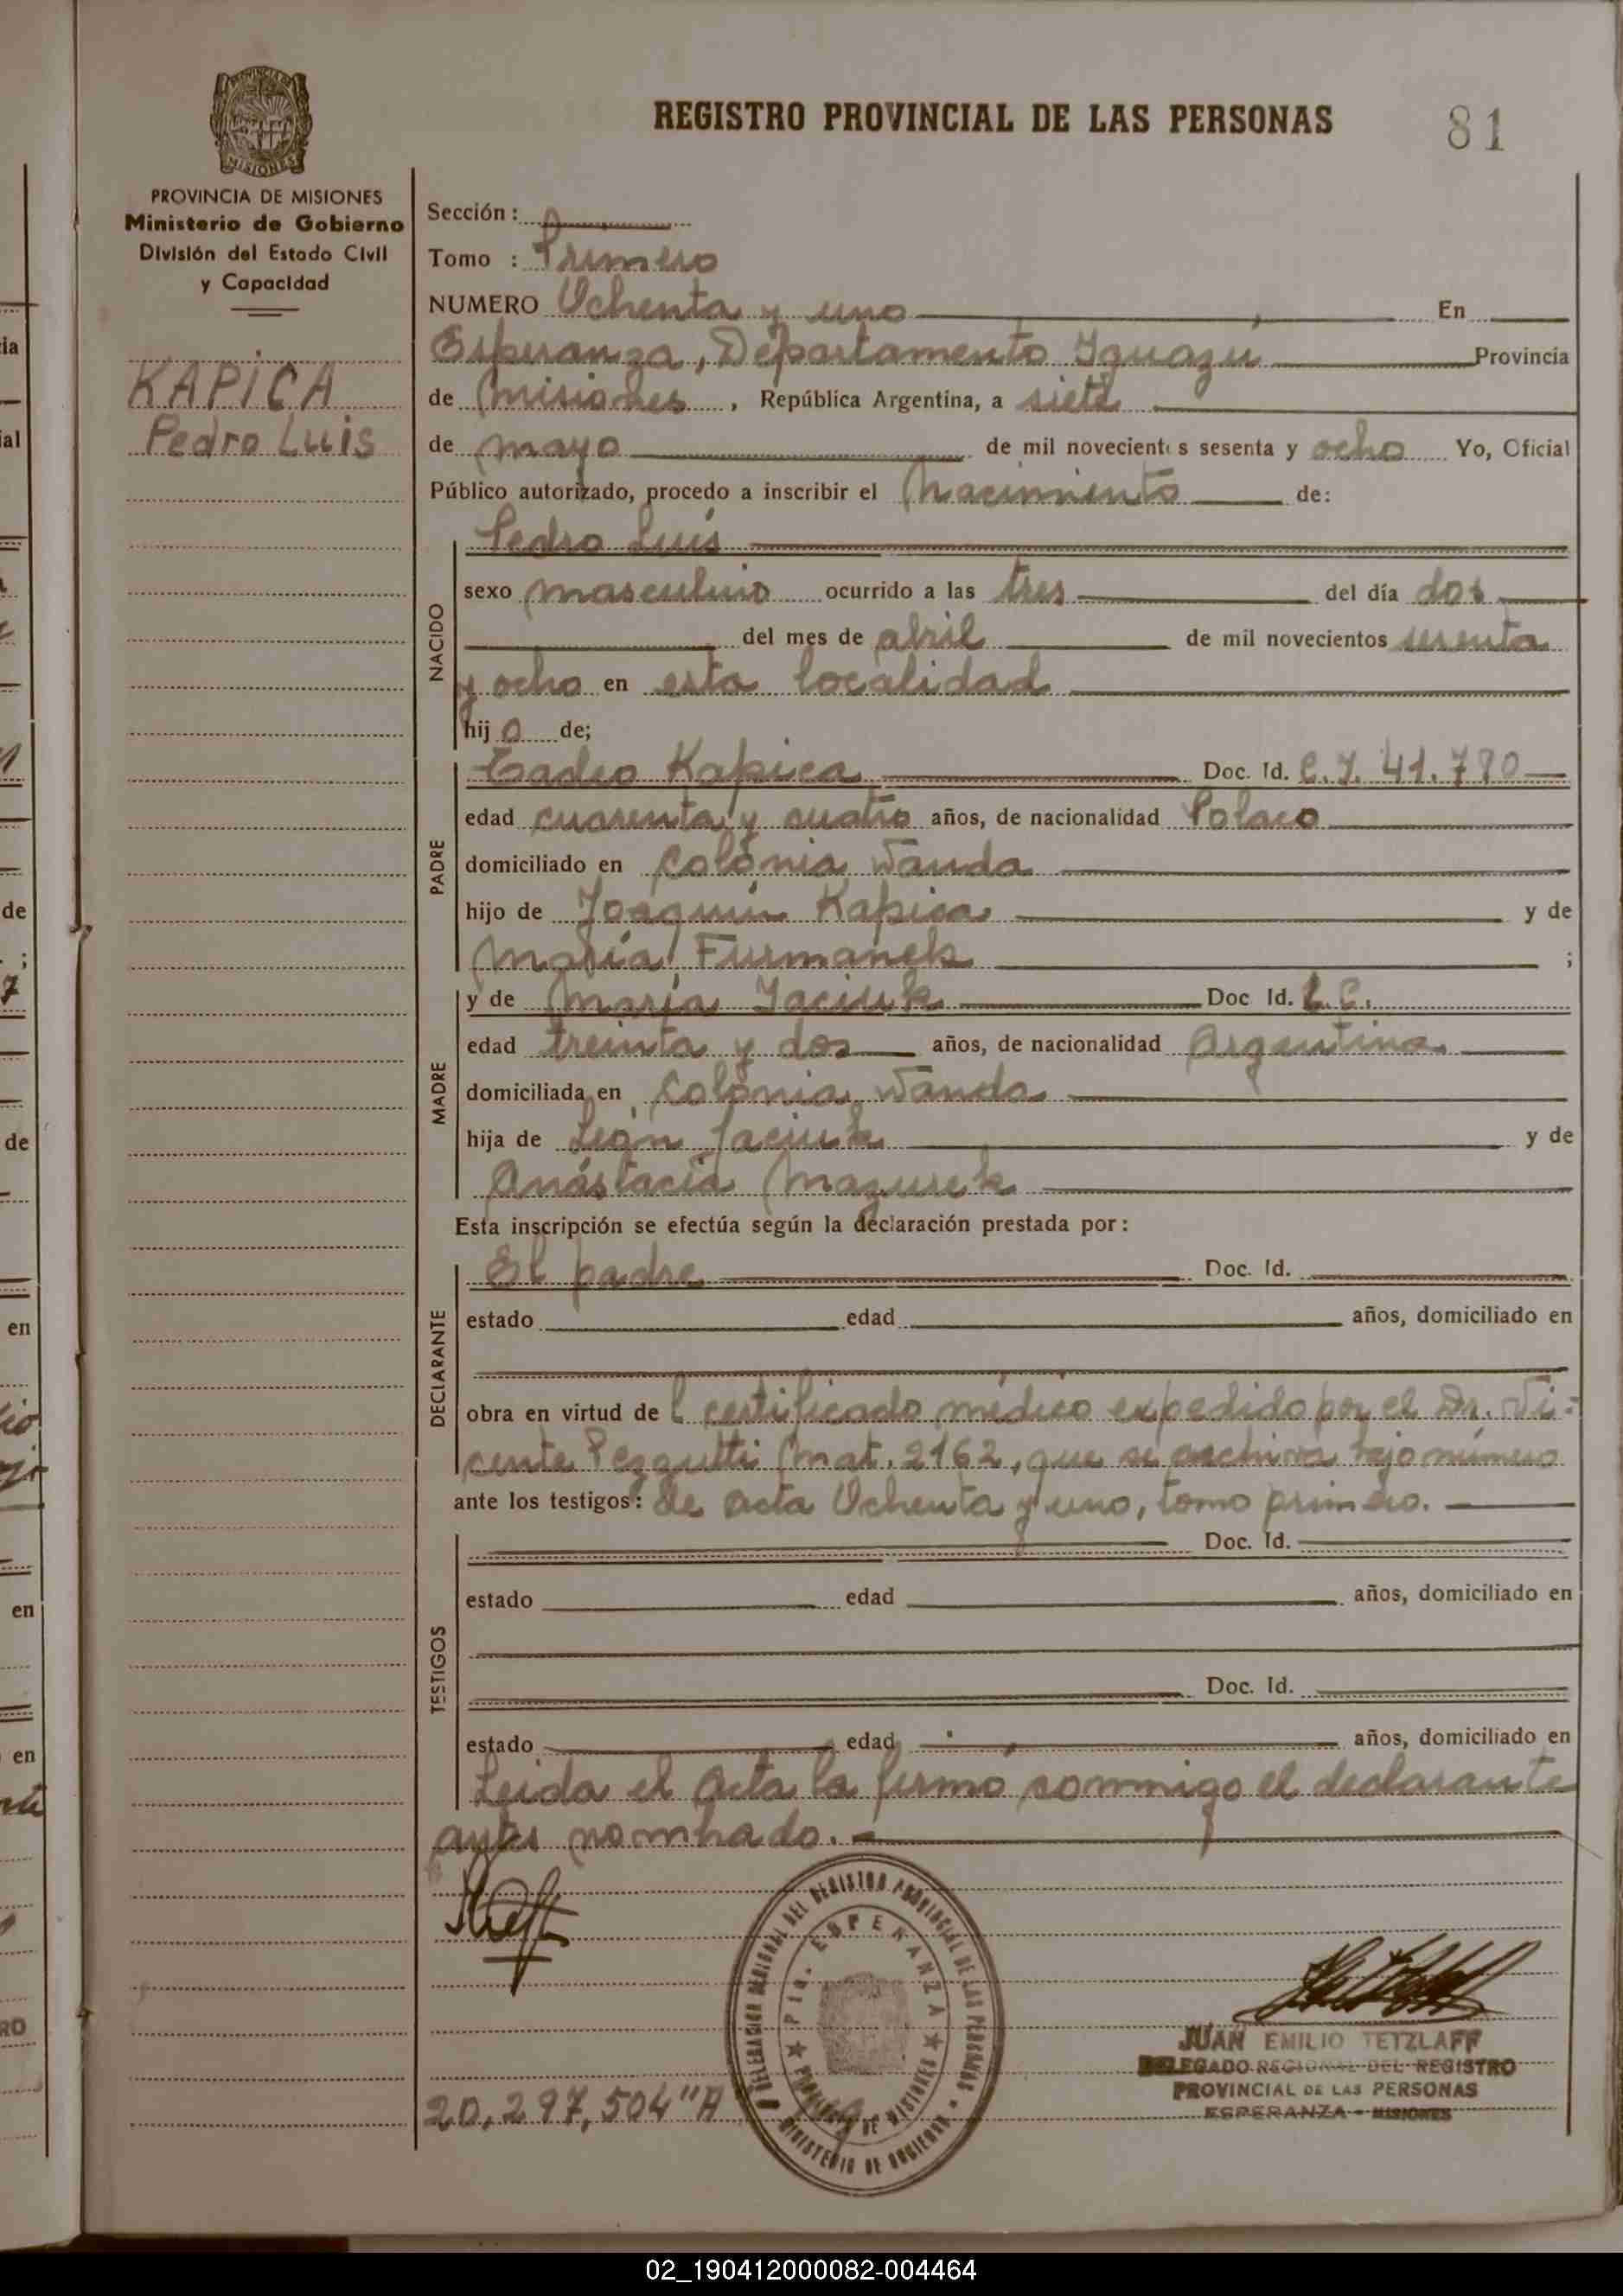 REGISTRO PROVINCIAL DE LAS PERSONAS
81
MISIONES
PROVINCIA DE MISIONES
Ministerio de Gobierno
División del Estado Civil
y Capacidad
KAPICA
Pedro Luis
Sección :
Tomo : Primero
NUMERO Ochenta y uno En
Esperanza, Departamento Iguazu Provincia
de Misiones , República Argentina, a siete
de mayo de mil novecientos sesenta y ocho Yo, Oficial
Público autorizado, procedo a inscribir el Nacimiento de:
NACIDO
Pedro Luis
sexo masculino ocurrido a las tres del día dos
del mes de abril de mil novecientos sesenta
y ocho en esta localidad
hij o de;
PADRE
Tadeo Kapica Doc. Id. C.I. 41.780
edad cuarenta y cuatro años, de nacionalidad Polaco
domiciliado en Colonia Wanda
hijo de Joaquín Kapica y de
María Furmanek ;
MADRE
y de María Jaciuk Doc Id. L.C.
edad treinta y dos años, de nacionalidad Argentina
domiciliada en Colonia Wanda
hija de León Jaciuk y de
Anastacia Mazurek
Esta inscripción se efectúa según la declaración prestada por:
DECLARANTE
El padre Doc. Id.
estado edad años, domiciliado en
obra en virtud de l certificado médico expedido por el Dr. Vi-
cente Pezzutti Mat. 2162, que se archiva bajo número
ante los testigos: de acta Ochenta y uno, tomo primero.
TESTIGOS
Doc. Id.
estado edad años, domiciliado en
Doc. Id.
estado edad años, domiciliado en
Leida el Acta la firmo conmigo el declarante
antes nombrado.-
DELEGACION REGIONAL DEL REGISTRO PROVINCIAL DE LAS PERSONAS
MINISTERIO DE GOBIERNO
Pto. ESPERANZA
DE MISIONES
JUAN EMILIO TETZLAFF
DELEGADO REGIONAL DEL REGISTRO
PROVINCIAL DE LAS PERSONAS
ESPERANZA - MISIONES
20,297,504 "A"
02_190412000082-004464